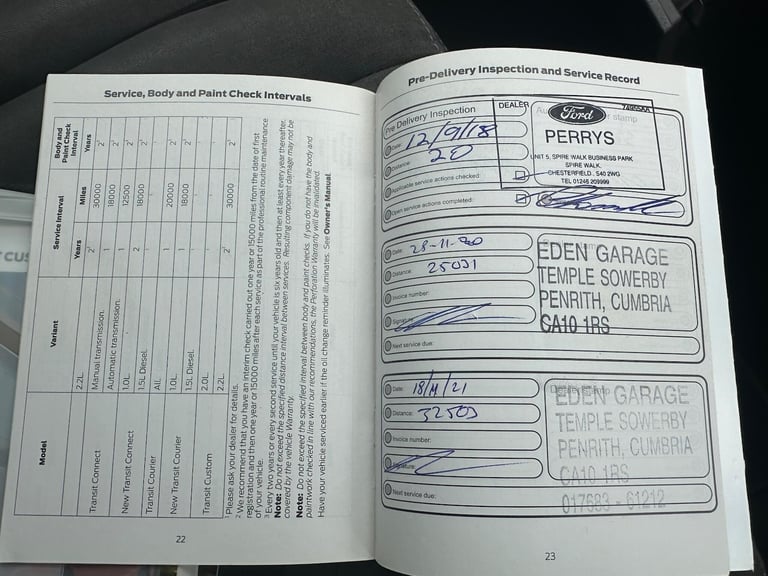 Service, Body and Paint Check Intervals
Model
Variant
Service Interval
Body and Paint Check Interval
Years
Miles
Years
2.2L
Manual transmission.
30000
Automatic transmission.
18000
Transit Connect
1.0L
12500
New Transit Connect
1.5L Diesel.
18000
Transit Courier
All.
New Transit Courier
1.0L
20000
1.5L Diesel.
18000
Transit Custom
2.0L
2.2L
30000
1 Please ask your dealer for details.
2 We recommend that you have an interim check carried out one year or 15000 miles from the date of first
registration and then one year or 15000 miles after each service as part of the professional routine maintenance
of your vehicle.
3 Every two years or every second service until your vehicle is six years old and then at least every year thereafter.
Note: Do not exceed the specified distance interval between services. Resulting component damage may not be
covered by the vehicle Warranty.
Note: Do not exceed the specified interval between body and paint checks. If you do not have the body and
paintwork checked in line with our recommendations, the Perforation Warranty will be invalidated.
Have your vehicle serviced earlier if the oil change reminder illuminates. See Owner's Manual.
22
Pre-Delivery Inspection and Service Record
Pre Delivery Inspection
Date: 12/9/18
Distance: 20
Applicable service actions checked:
Open service actions completed:
DEALER
stamp
Ford
PERRYS
UNIT 5, SPIRE WALK BUSINESS PARK
SPIRE WALK
CHESTERFIELD, S40 2WG
TEL 01246 209999
Date: 28-11-20
Distance: 25031
Invoice number:
Signature:
Next service due:
EDEN GARAGE
TEMPLE SOWERBY
PENRITH, CUMBRIA
CA10 1RS
Date: 18/11/21
Distance: 32503
Invoice number:
Signature:
Next service due:
EDEN GARAGE
TEMPLE SOWERBY
PENRITH, CUMBRIA
CA10 1RS
017683 - 61212
23